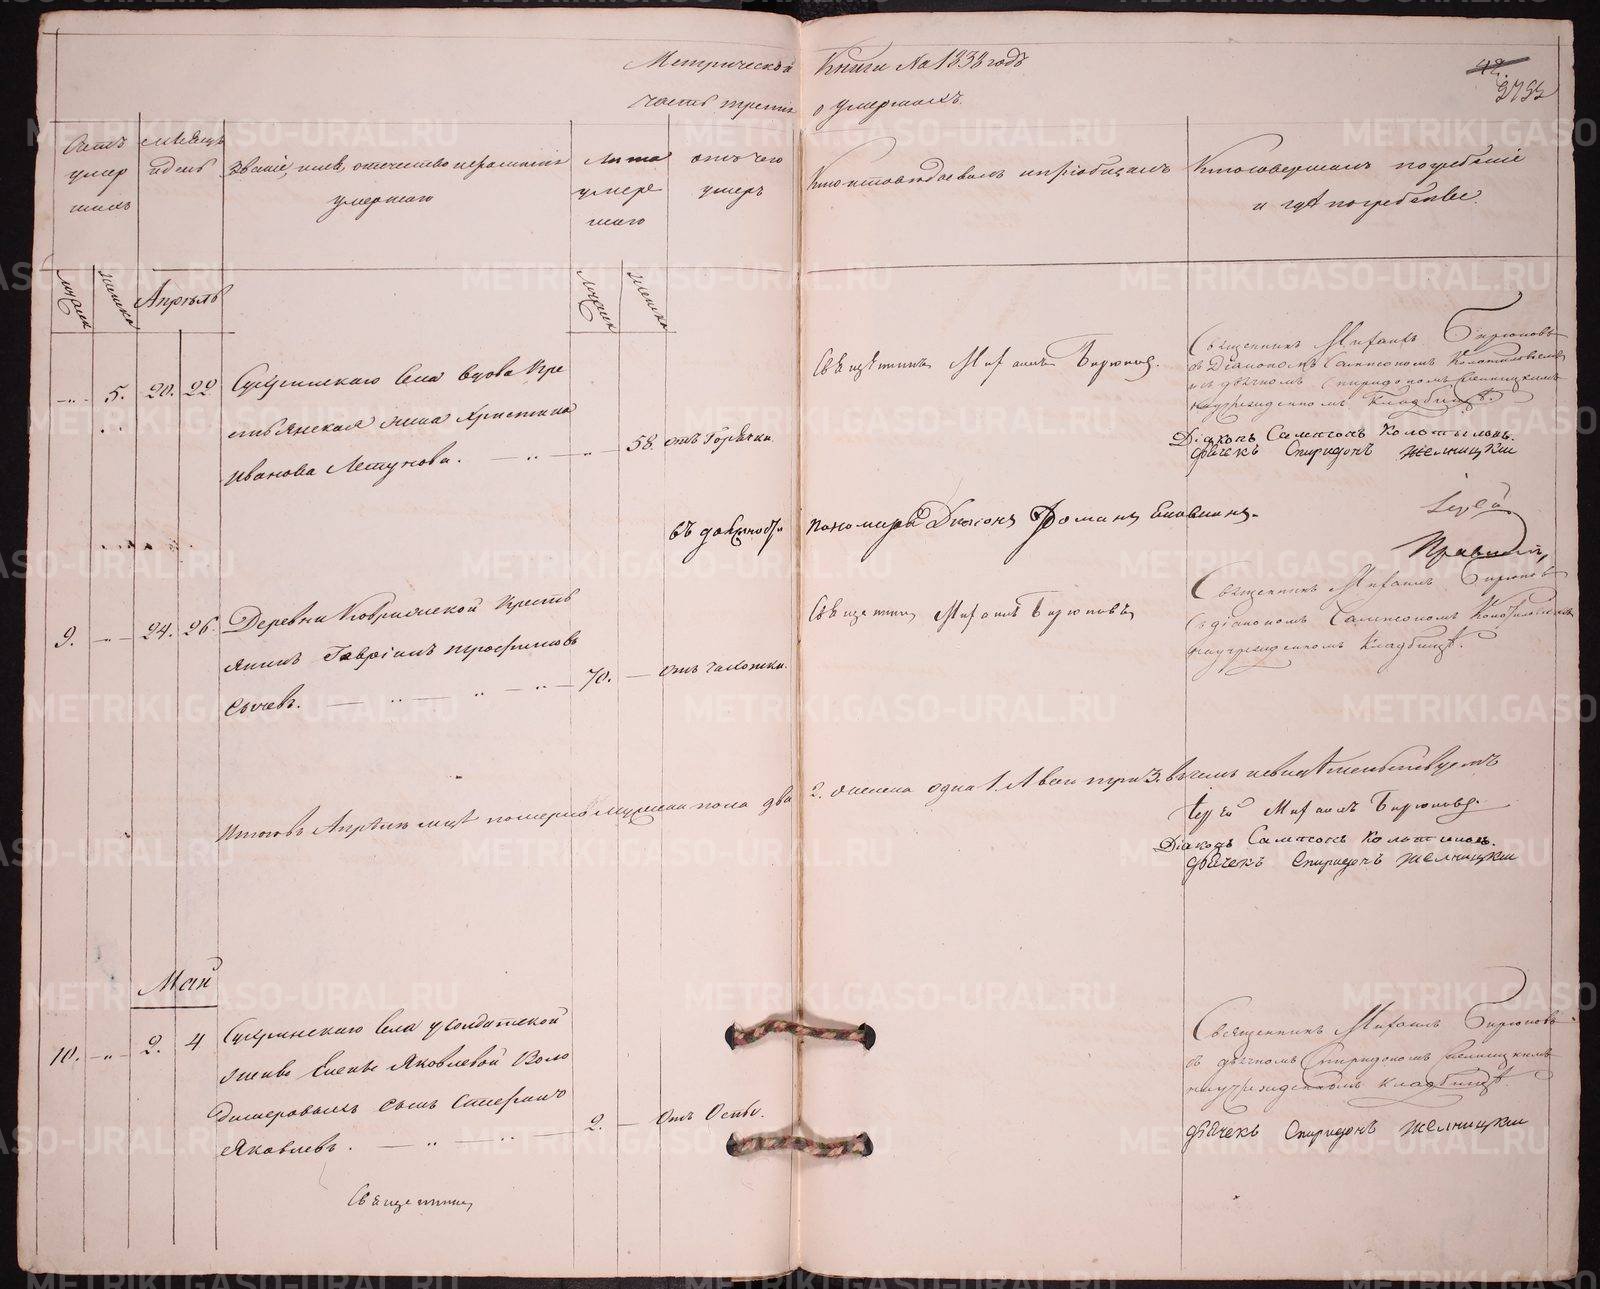 Метрической Книги На 1838 годъ
часть третия о умершихъ.
42.
Счетъ умер шихъ
мѣсяцъ и день
Званiе, имя, отечество и фамилiя умершаго
Лѣта умер шаго
отъ чего умеръ
Кто исповѣдовалъ и прiобщалъ
Кто совершалъ погребенiе и гдѣ погребены
мужеска женска Апрѣль мужеска женска
„ 5. 20. 22
Сугринскаго Села вдова Кре
стьянская жена Христина
Иванова Летунова.
58. отъ Горячки.
Священникъ Михаилъ Бирюковъ.
Священникъ Михаилъ Бирюковъ
съ Дiакономъ Сампсономъ
и съ дьячкомъ Спиридономъ
на учрежденномъ Кладбищѣ.
Дiаконъ Сампсонъ
дьячекъ Спиридонъ Желницкiи
въ должности пономаря Дiаконъ Романъ
9. „ 24. 26.
Деревни Ковригиской Кресть
янинъ Гаврiилъ Трофимовъ
Сычевъ.
70. отъ чахотки.
Священникъ Михаилъ Бирюковъ
Священникъ Михаилъ Бирюковъ
съ дiакономъ Сампсономъ
на учрежденномъ Кладбищѣ.
Итого въ Апрѣлѣ мцѣ померло мужеска пола два 2. женска одна 1. А всѣхъ три 3. въ чемъ и свидѣтельствуемъ
Iерей Михаилъ Бирюковъ.
Дiаконъ Сампсонъ
дьячекъ Спиридонъ Желницкiи
Май
10. „ 2. 4
Сугринскаго Села у солдатской
жены Елены Яковлевой Воло
димеровыхъ сынъ
Яковлевъ.
2. отъ Оспы.
Священникъ Михаилъ Бирюковъ
съ дьячкомъ Спиридономъ
на учрежденномъ кладбищѣ.
дьячекъ Спиридонъ Желницкiи
Священникъ
METRIKI.GASO-URAL.RU